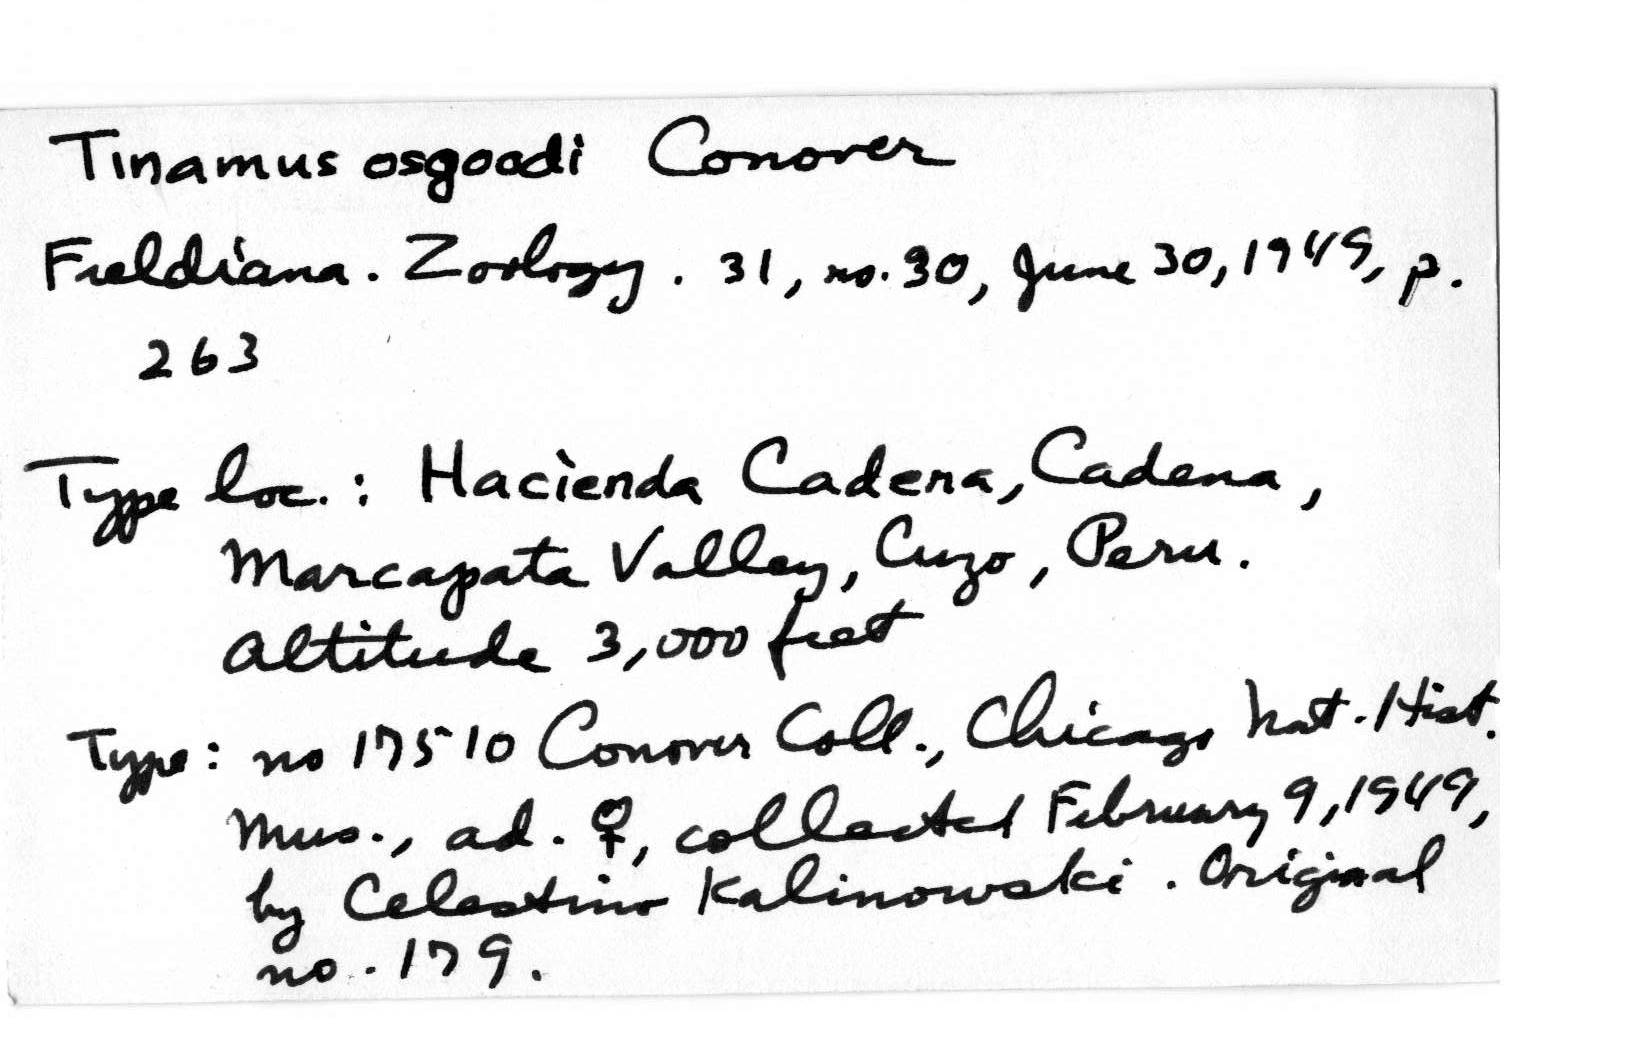 Tinamus osgoodi Conover
Fieldiana. Zoology. 31, no. 30, June 30, 1949, p.
263
Type loc.: Hacienda Cadena, Cadena,
Marcapata Valley, Cuzo, Peru.
Altitude 3,000 feet
Type: no 17510 Conover Coll., Chicago Nat. Hist.
Mus., ad. ♀, collected February 9, 1949,
by Celestino Kalinowski. Original
no. 179.